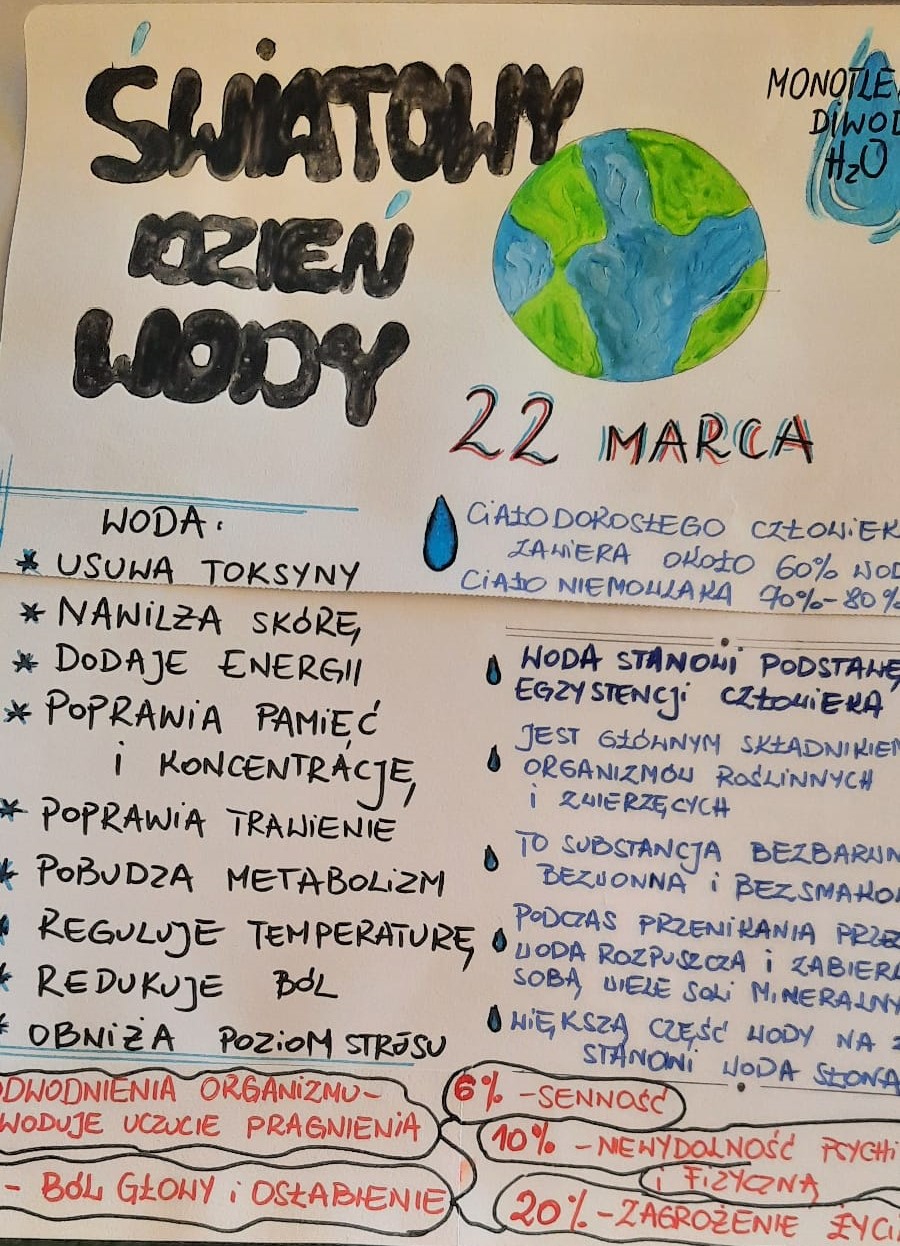 ŚWIATOWY
DZIEŃ
WODY
MONOTLE
DIWOD
H₂O
22 MARCA
WODA:
* USUWA TOKSYNY
* NAWILŻA SKÓRĘ
* DODAJE ENERGII
* POPRAWIA PAMIĘĆ
i KONCENTRACJĘ
* POPRAWIA TRAWIENIE
* POBUDZA METABOLIZM
* REGULUJE TEMPERATURĘ
* REDUKUJE BÓL
* OBNIŻA POZIOM STRESU
CIAŁO DOROSŁEGO CZŁOWIEK
ZAWIERA OKOŁO 60% WOD
CIAŁO NIEMOWLAKA 70%-80%
WODA STANOWI PODSTAWĘ
EGZYSTENCJI CZŁOWIEKA
JEST GŁÓWNYM SKŁADNIKIEM
ORGANIZMÓW ROŚLINNYCH
i ZWIERZĘCYCH
TO SUBSTANCJA BEZBARWN
BEZWONNA i BEZSMAKO
PODCZAS PRZENIKANIA PRZE
WODA ROZPUSZCZA i ZABIERA
SOBĄ WIELE SOLI MINERALNY
WIĘKSZĄ CZĘŚĆ WODY NA Z
STANOWI WODA SŁONA
DWODNIENIA ORGANIZMU-
WODUJE UCZUCIE PRAGNIENIA
- BÓL GŁOWY i OSŁABIENIE
6% -SENNOŚĆ
10% - NIEWYDOLNOŚĆ PSYCHI
i FIZYCZNĄ
20% -ZAGROŻENIE ŻYCI